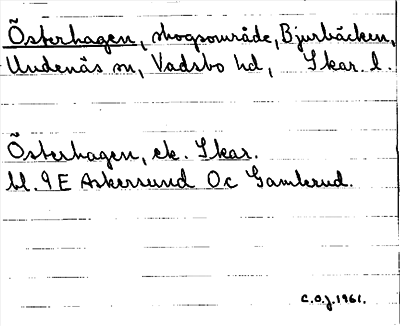 Österhagen, skogsområde, Bjurbäcken,
Undenäs sn, Vadsbo hd, Skar. l.
Österhagen, ek. Skar.
bl. 9E Askersund Oc Gamlerud.
C.O.J. 1961.